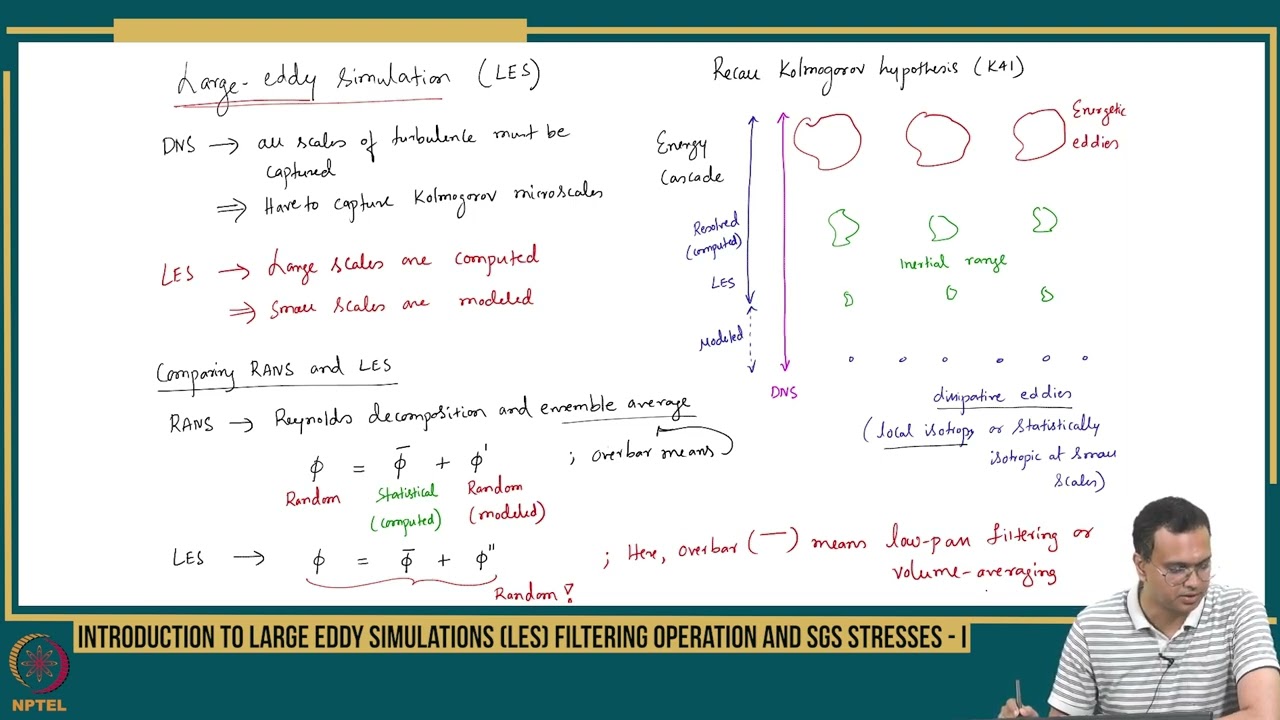 Large-eddy simulation (LES)
DNS → all scales of turbulence must be
captured
⇒ Have to capture Kolmogorov microscales
LES → Large scales are computed
⇒ Small scales are modeled
Comparing RANS and LES
RANS → Reynolds decomposition and ensemble average
ϕ = ϕ̅ + ϕ' ; overbar means
Random Statistical Random
(computed) (modeled)
LES → ϕ = ϕ̅ + ϕ'' ; Here, overbar (—) means low-pass filtering or
volume-averaging
Random!
Recall Kolmogorov hypothesis (K41)
Energy
Cascade
Energetic
eddies
Resolved
(computed)
LES
Inertial range
Modeled
DNS
dissipative eddies
(local isotropy or statistically
isotropic at small
scales)
INTRODUCTION TO LARGE EDDY SIMULATIONS (LES) FILTERING OPERATION AND SGS STRESSES - I
NPTEL